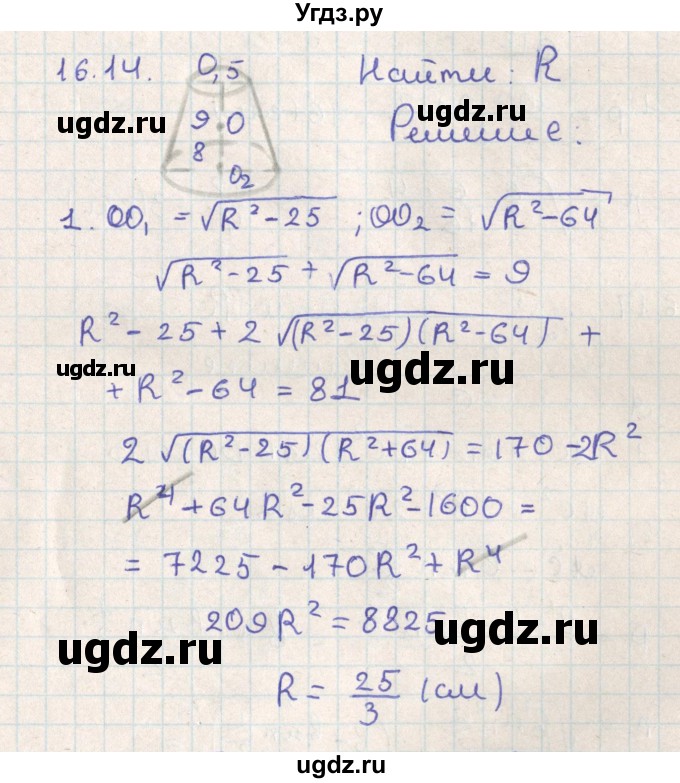 Угдз.ру
16.14. 0,5 Найти: R
ugdz.ru
9 O ugdz.ru
Решение:
8
O₂
1. OO₁ = √(R² - 25) ; OO₂ = √(R² - 64)
√(R² - 25) + √(R² - 64) = 9
R² - 25 + 2 √((R² - 25)(R² - 64)) +
ugdz.ru ugdz.ru
+ R² - 64 = 81
2 √((R² - 25)(R² + 64)) = 170 - 2R²
R⁴ + 64R² - 25R² - 1600 =
= 7225 - 170R² + R⁴
209R² = 8825
ugdz.ru ugdz.ru
R = 25/3 (см)
ugdz.ru